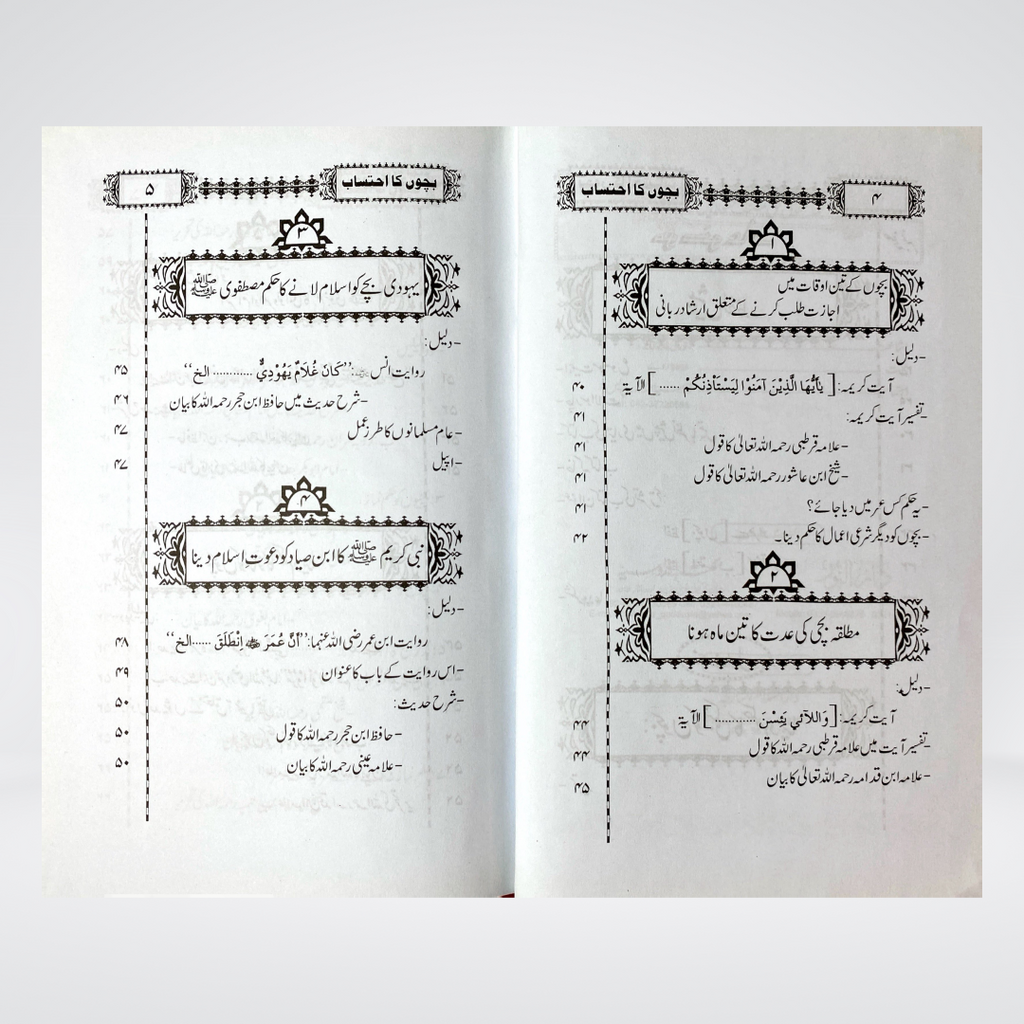 ۴
بچوں کا احتساب
۱
بچوں کے تین اوقات میں
اجازت طلب کرنے کے متعلق ارشاد ربانی
-دلیل:
آیت کریمہ: [يٰأَيُّهَا الَّذِيْنَ آمَنُوْا لِيَسْتَأْذِنْكُمْ ......] الآية ۴۰
-تفسیر آیت کریمہ: ۴۱
-علامہ قرطبی رحمہ اللہ تعالیٰ کا قول ۴۱
-شیخ ابن عاشور رحمہ اللہ تعالیٰ کا قول ۴۱
-یہ حکم کس عمر میں دیا جائے؟ ۴۱
-بچوں کو دیگر شرعی اعمال کا حکم دینا۔ ۴۲
۲
مطلقہ بچی کی عدت کا تین ماہ ہونا
-دلیل:
آیت کریمہ: [وَاللَّآئِي يَئِسْنَ ...........] الآية ۴۴
-تفسیر آیت میں علامہ قرطبی رحمہ اللہ کا قول ۴۴
-علامہ ابن قدامہ رحمہ اللہ تعالیٰ کا بیان ۴۵
بچوں کا احتساب
۵
۳
یہودی بچے کو اسلام لانے کا حکم مصطفوی ﷺ
-دلیل:
روایت انس رضی اللہ عنہ: ”كَانَ غُلَامٌ يَهُوْدِيٌّ ............ الخ“ ۴۵
-شرح حدیث میں حافظ ابن حجر رحمہ اللہ کا بیان ۴۶
-عام مسلمانوں کا طرز عمل ۴۷
-اپیل ۴۷
۴
نبی کریم ﷺ کا ابن صیاد کو دعوتِ اسلام دینا
-دلیل:
روایت ابن عمر رضی اللہ عنہما: ”أَنَّ عُمَرَ رضی اللہ عنہ اِنْطَلَقَ ......الخ“ ۴۸
-اس روایت کے باب کا عنوان ۴۹
-شرح حدیث: ۵۰
-حافظ ابن حجر رحمہ اللہ کا قول ۵۰
-علامہ عینی رحمہ اللہ کا بیان ۵۰